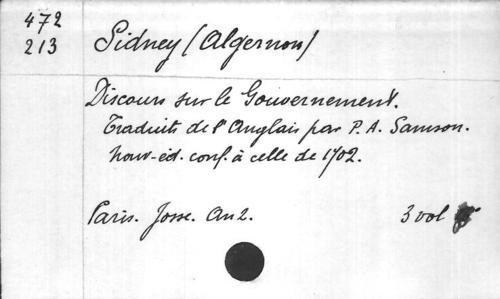 472
213
Sidney (Algernon)
Discours sur le Gouvernement.
Traduits de l'Anglais par P. A. Samson.
nouv-éd. conf. à celle de 1702.
Paris. Josse. An 2. 3 vol